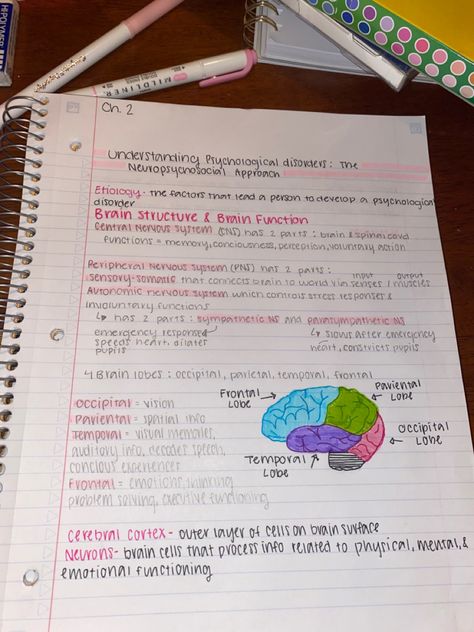 HI-POLYMER
MILDLINER
Ch. 2
Understanding Psychological disorders: The
Neuropsychosocial Approach
Etiology - the factors that lead a person to develop a psychological
disorder
Brain Structure & Brain Function
Central Nervous System (CNS) has 2 parts: brain & spinal cord
functions = memory, conciousness, perception, voluntary action
Peripheral Nervous System (PNS) has 2 parts:
input output
sensory-somatic that connects brain to world via senses / muscles
Autonomic nervous system which controls stress responses &
involuntary functions
↳ has 2 parts: sympathetic NS and parasympathetic NS
emergency response ↳ slows after emergency
speeds heart, dilates heart, constricts pupils
pupils
4 Brain lobes: occipital, parietal, temporal, frontal
Frontal Lobe
Pariental Lobe
Occipital Lobe
Temporal Lobe
Occipital = vision
Pariental = spatial info
Temporal = visual memories,
auditory info, decodes speech,
concious experiences
Frontal = emotions, thinking
problem solving, executive functioning
Cerebral cortex - outer layer of cells on brain surface
Neurons - brain cells that process info related to physical, mental, &
emotional functioning